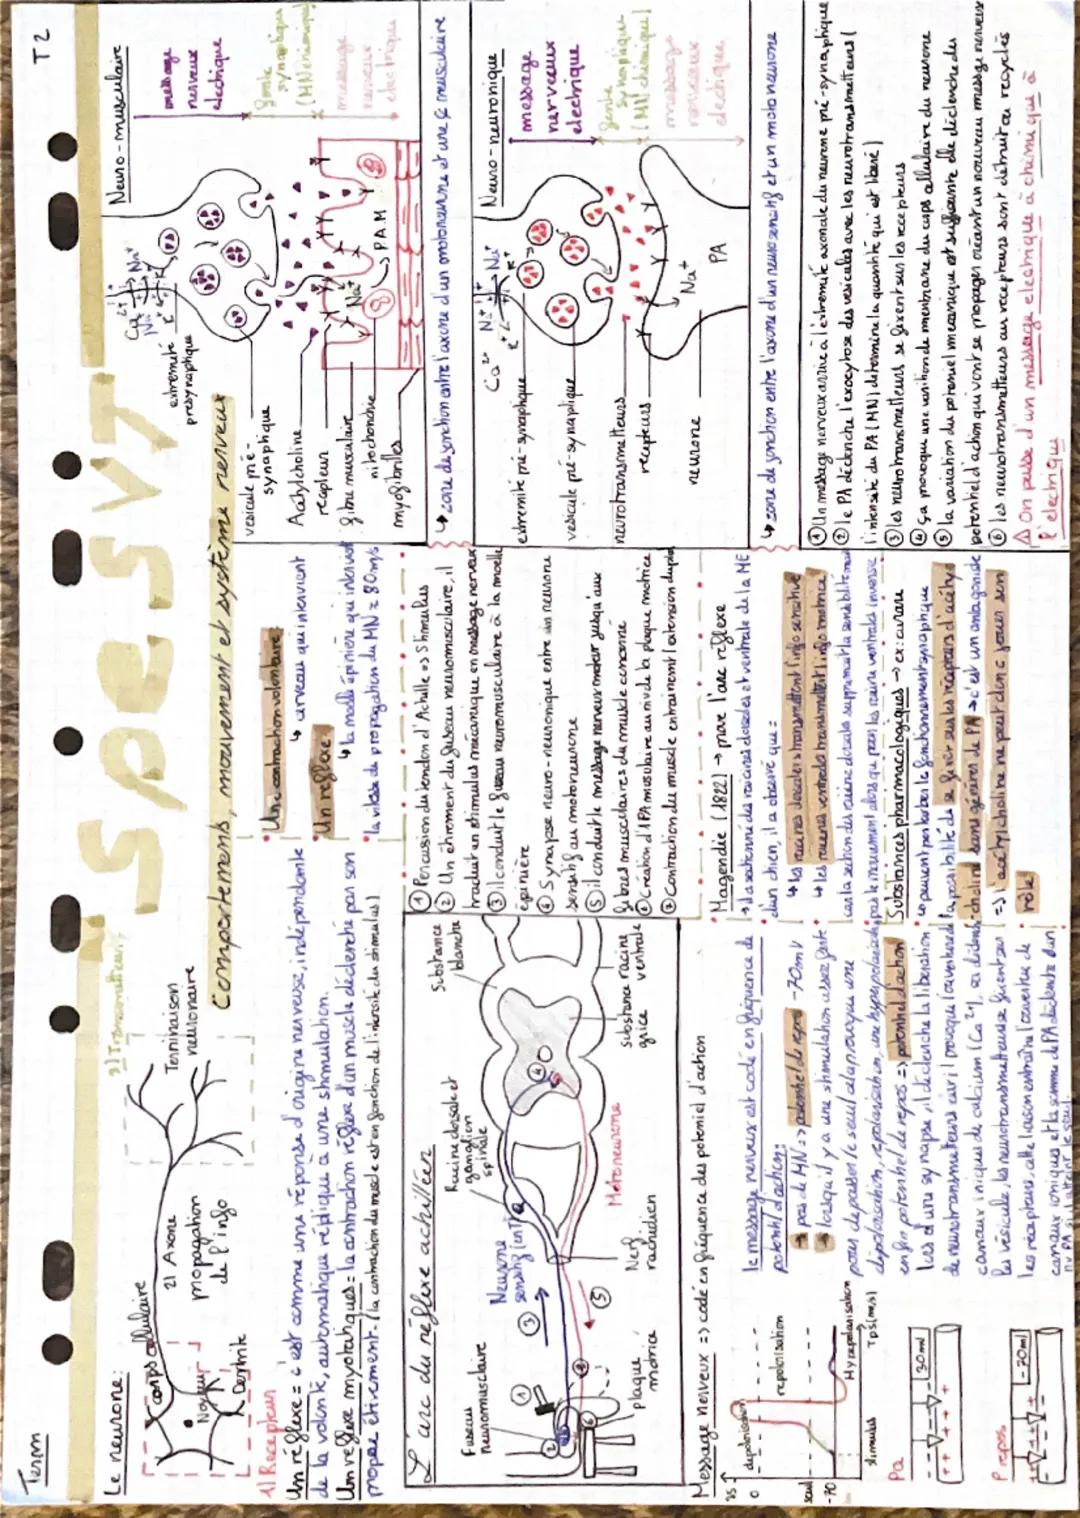 Term
T2
SPESVT
Comportements, mouvement et système nerveux
Le neurone:
corps cellulaire
Noyau
Dendrite
2) Axone
propagation
de l'info
3) Transmetteur
Terminaison
neuronaire
1) Recepteur
Un réflexe = c'est comme une réponse d'origine nerveuse, indépendante
de la volonté, automatique réplique à une stimulation.
Un reflexe myotatiques = la contraction réflexe d'un muscle déclenché par son
propre étirement. (la contraction du muscle est en fonction de l'intensité du stimulus)
• Une contraction volontaire:
↳ cerveau qui intervient
• Un reflexe:
↳ la moelle épinière qui intervient
• la vitesse de propagation du MN ≈ 80 m/s
L'arc du réflexe achilléen
Fuseau
neuromusculaire
Neurone
sensitif
Racine dorsale et
ganglion
spinale
Substance
blanche
substance
grise
racine
ventrale
Motoneurone
Nerf
rachidien
plaque
motrice
① Percussion du tendon d'Achille => Stimulus
② Un étirement du fuseau neuromusculaire, il
traduit un stimulus mécanique en message nerveux
③ il conduit le fuseau neuromusculaire à la moelle
épinière
④ Synapse neuro-neuronique entre un neurone
sensitif au motoneurone
⑤ il conduit le message nerveux moteur jusqu'aux
fibres musculaires du muscle concerné
⑥ Création d'1 PA musculaire au niveau de la plaque motrice
⑦ Contraction du muscle entrainent l'extension du pied
Message nerveux => codé en fréquence des potentiel d'action
35
0
seuil
-70
depolarisation
repolarisation
Hyperpolarisation
stimulus
Tps (ms)
PA
30mV
P repos
-70mV
• le message nerveux est codé en fréquence de
potentiel d'action:
→ pas de MN => potentiel de repos -70mV
→ lorsqu'il y a une stimulation assez forte
pour dépasser le seuil cela provoque une
dépolarisation, repolarisation, une hyperpolarisation,
enfin potentiel de repos => potentiel d'action
Lors d'une synapse, il déclenche la libération
de neurotransmetteurs car il provoque l'ouverture de
canaux ioniques de calcium (Ca²⁺)
les récepteurs, cette liaison entraîne l'ouverture de
canaux ioniques et la somme de PA déclenche d'un
nv PA si il atteint le seuil
• Magendie (1822) → prouve l'arc reflexe
→ il a sectionné des racines dorsales et ventrale de la ME
d'un chien, il a observé que =
↳ les racines dorsales transmettent l'info sensitive
↳ les racines ventrales transmettent l'info motrice
car la section des racine dorsales supprimait la sensibilité mais
pas le mouvement alors que pour les racine ventrales inverse
• Substances pharmacologiques → ex: curare
↳ peuvent perturber le fonctionnement synaptique
la possibilité de se fixer sur les récepteurs d'acétyl-
choline sans générer de PA → c'est un antagoniste
=> l'acétylcholine ne peut donc jouer son
rôle
Neuro-musculaire
message
nerveux
électrique
fente
synaptique
(MN chimique)
message
nerveux
électrique
Ca²⁺
Na⁺
K⁺
extremité
presynaptique
vesicule pré-
synaptique
Acétylcholine
recepteur
fibre musculaire
mitochondrie
myofibrilles
Na⁺
P.A.M
↳ zone de jonction entre l'axone d'un motoneurone et une f musculaire
Neuro-neuronique
message
nerveux
electrique
fente
synaptique
(MN chimique)
message
nerveux
electrique
Ca²⁺
Na⁺
K⁺
extremité pré-synaptique
vesicule pré-synaptique
neurotransmetteurs
recepteurs
neurone
Na⁺
PA
↳ zone de jonction entre l'axone d'un neurone sensitif et un motoneurone
① Un message nerveux arrive à l'extremité axonale du neurone pré-synaptique
② le PA déclenche l'exocytose des vesicules avec les neurotransmetteurs (
l'intensité du PA (MN) détermine la quantité qui est libéré)
③ les neurotransmetteurs se fixent sur les recepteurs
④ ça provoque une variation de membrane du corps cellulaire du neurone
⑤ la variation du potentiel mécanique est suffisante elle déclenche des
potentiel d'action qui vont se propager créeant un nouveau message nerveux
⑥ les neurotransmetteurs aux recepteurs sont détruit ou recyclés
⚠ On passe d'un message electrique à chimique à
electrique